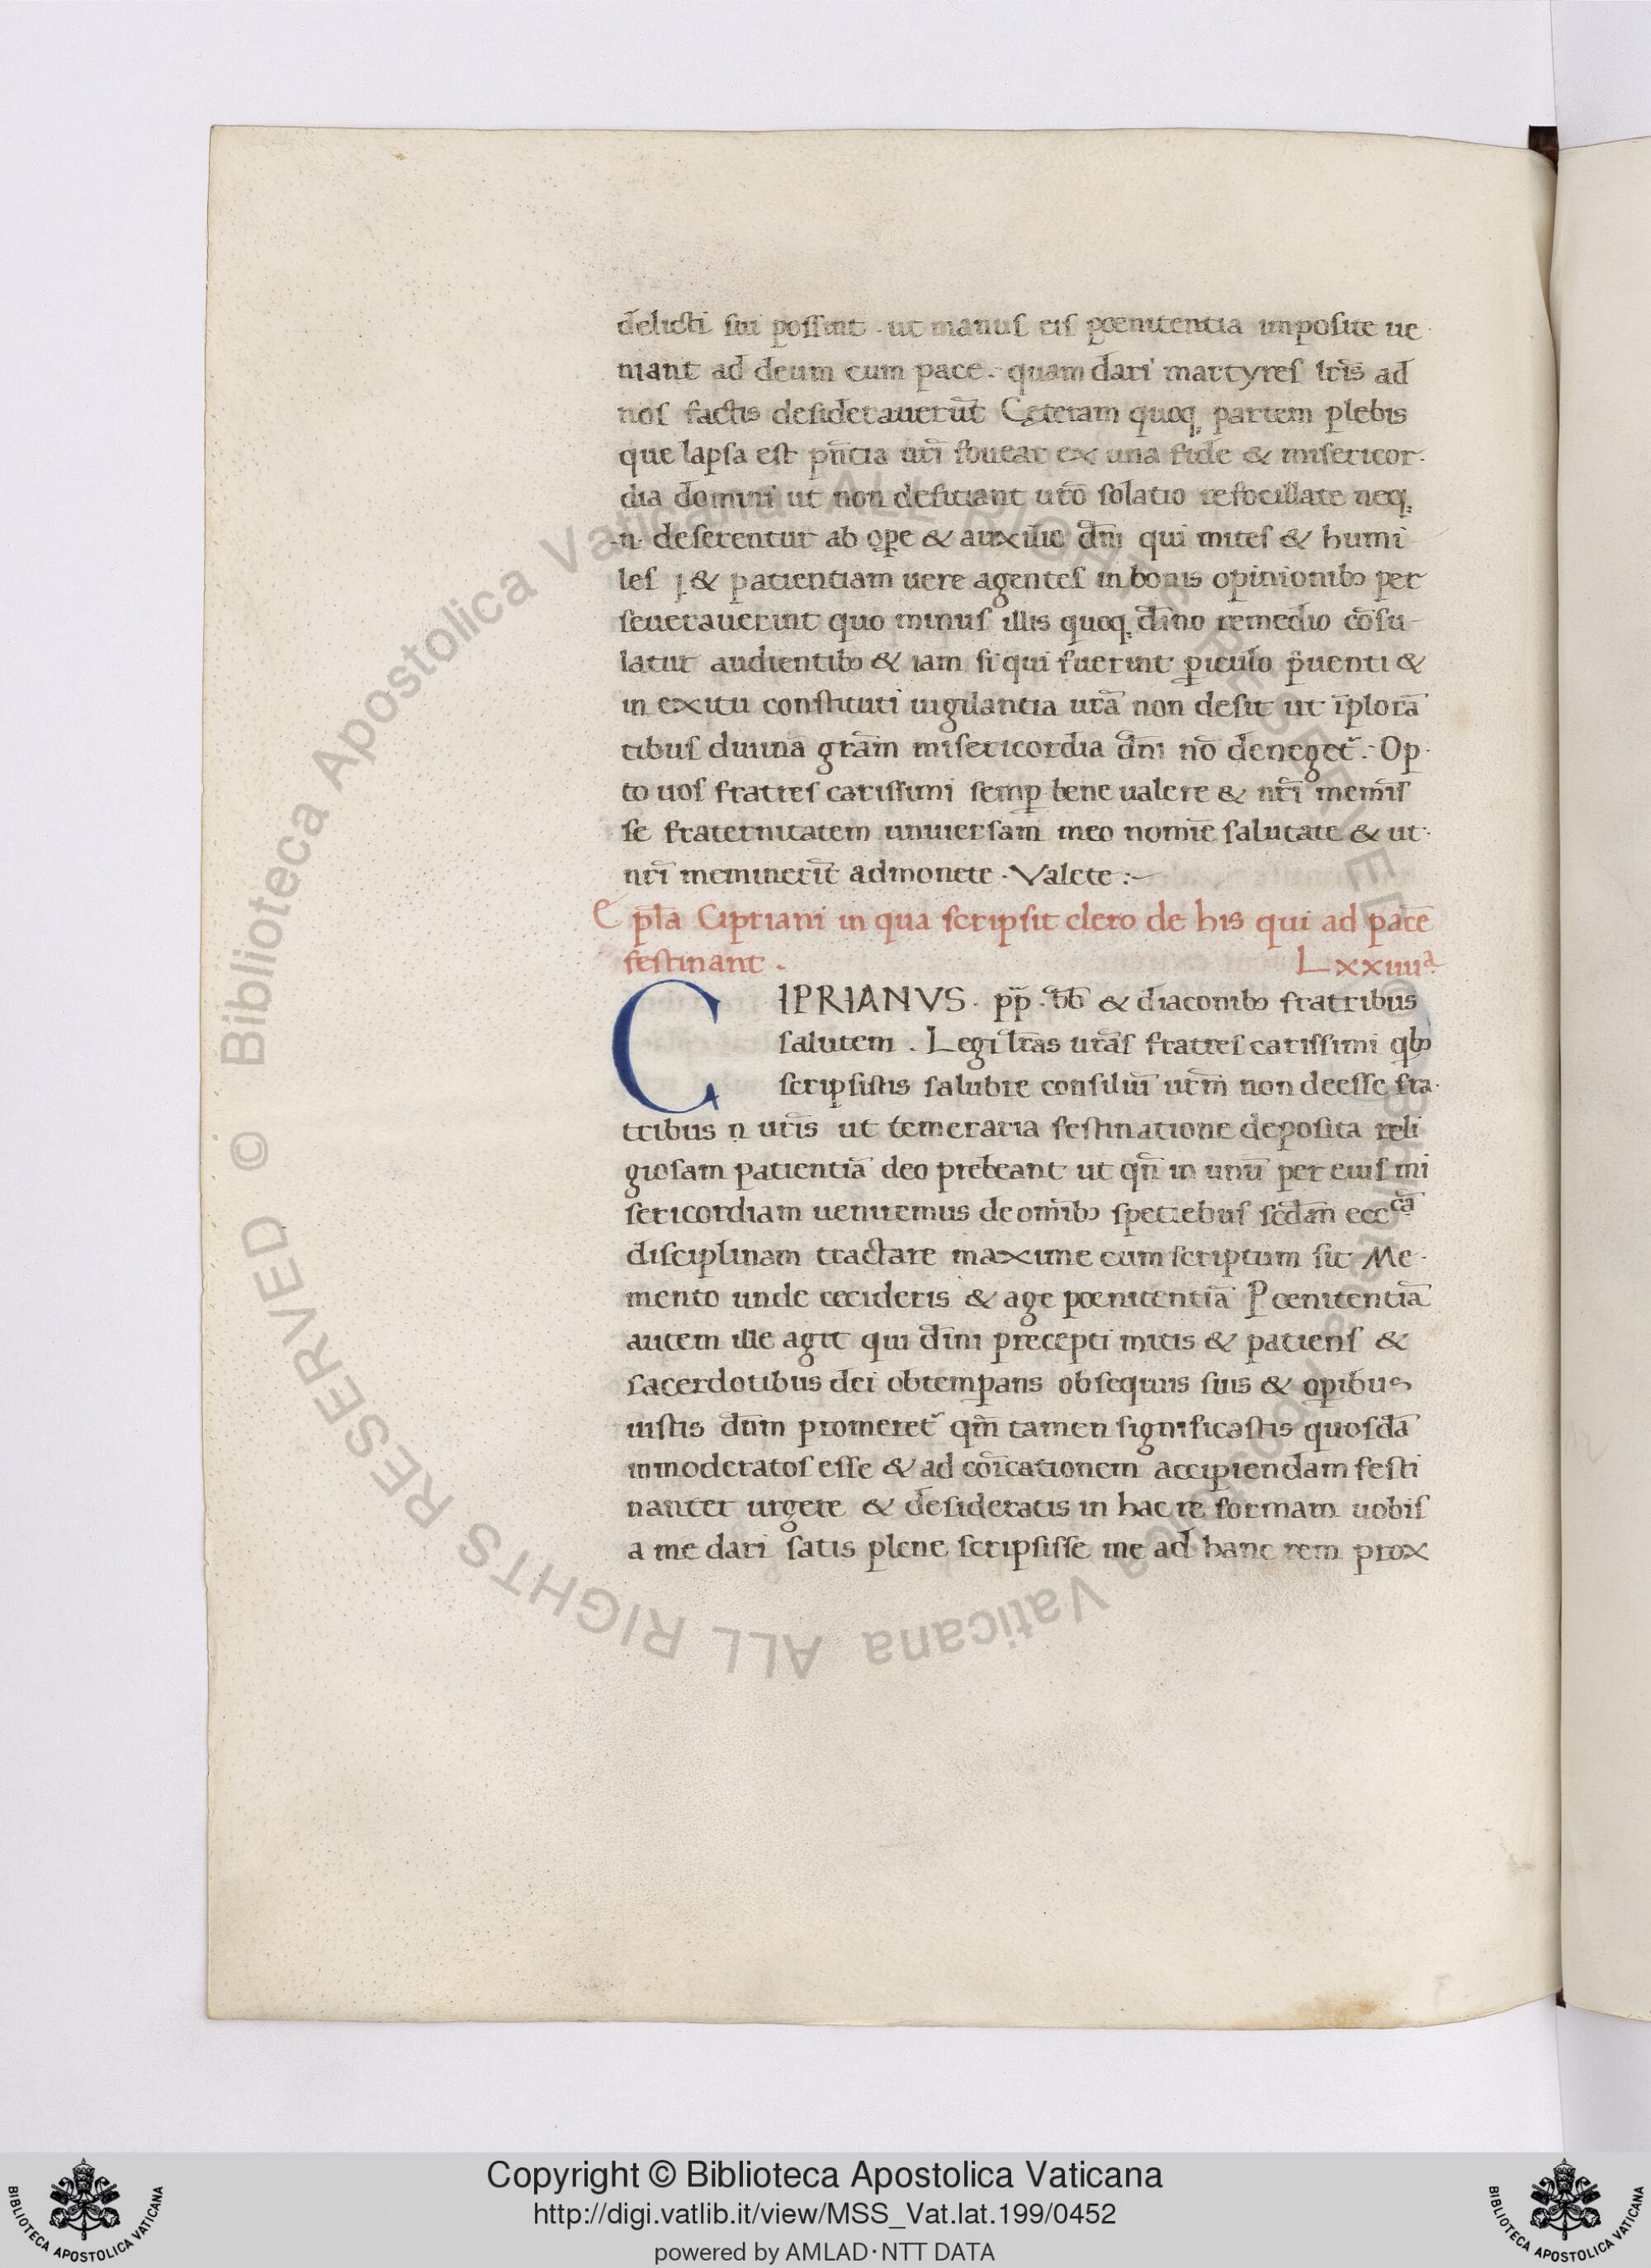 delicti sui possint · ut manus eis pœnitentia imposite ue·
niant ad deum cum pace · quam dari martyres lr̄is ad
nos factis desiderauerūt Cęteram quoq; partem plebis
que lapsa est pn̄tia ur̄i foueat ex una fide & misericor·
dia domini ut non deficiant ur̄o solatio refocillate neq;
·n· deserentur ab ope & auxilio dn̄i qui mites & humi
les & patientiam uere agentes in bonis opinionibꝫ per
seuerauerint quo minus illis quoq; diīno remedio cōsu-
latur audientibꝫ & iam si qui fuerint ꝑiculo p̄uenti &
in exitu constituti uigilantia ur̄a non desit ut īplorā
tibus diuinā grām misericordia dn̄i nō denegeť · Op·
to uos fratres carissimi semꝑ bene ualere & nr̄i memīs
se fraternitatem uniuersam meo nomīe salutate & ut·
nr̄i meminerīt admonete · Valete :~
Ep̄la Cipriani in qua scripsit clero de his qui ad pacē
festinant · Lxxiiiiª·
CIPRIANVS · pp̄ · *bb̄ & diaconibꝫ fratribus
salutem · Legi lr̄as ur̄as fratres carissimi qbꝫ
scripsistis salubre consiliū ur̄m non deesse fra·
tribus n ur̄is ut temeraria festinatione deposita reli
giosam patientiā deo prebeant ut qn̄ in unū per eius mi
sericordiam uenuremus de om̄ibꝫ speciebus scd̄am ecc̄cā
disciplinam tractare maxime cum scriptum sit Me·
mento unde cecideris & age pœnitentiā Pœnitentiā
autem ille agit qui dīni precepti mitis & patiens &
sacerdotibus dei obtemꝑans obsequiis suis & oꝑibus
iustis dn̄m promereť qm̄ tamen significastis quosdā
inmoderatos esse & ad cōicationem accipiendam festi
nanter urgere & desideratis in hac re formam uobis
a me dari satis plene scripsisse me ad hanc rem prox
Copyright © Biblioteca Apostolica Vaticana
http://digi.vatlib.it/view/MSS_Vat.lat.199/0452
powered by AMLAD·NTT DATA
BIBLIOTECA APOSTOLICA VATICANA
BIBLIOTECA APOSTOLICA VATICANA
© Biblioteca Apostolica Vaticana ALL RIGHTS RESERVED
© Biblioteca Apostolica Vaticana ALL RIGHTS RESERVED